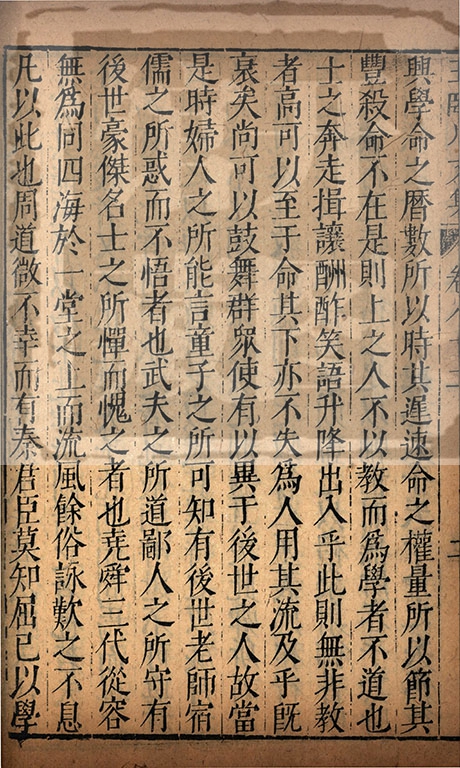 王臨川文集 卷八十二 二
興學命之曆數所以時其遲速命之權量所以節其
豐殺命不在是則上之人不以教而爲學者不道也
士之奔走揖讓酬酢笑語升降出入乎此則無非教
者高可以至于命其下亦不失爲人用其流及乎既
衰矣尚可以鼓舞群衆使有以異于後世之人故當
是時婦人之所能言童子之所可知有後世老師宿
儒之所惑而不悟者也武夫之所道鄙人之所守有
後世豪傑名士之所憚而愧之者也堯舜三代從容
無爲同四海於一堂之上而流風餘俗詠歎之不息
凡以此也周道微不幸而有秦君臣莫知屈已以學